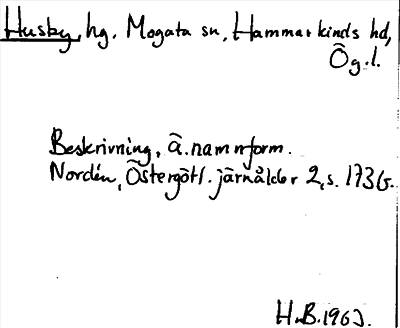 Husby, hg. Mogata sn, Hammarkinds hd,
Ög.l.
Beskrivning, ä. namnform.
Nordén, Östergötl. järnålder 2, s. 173 f.
H.B. 1963.